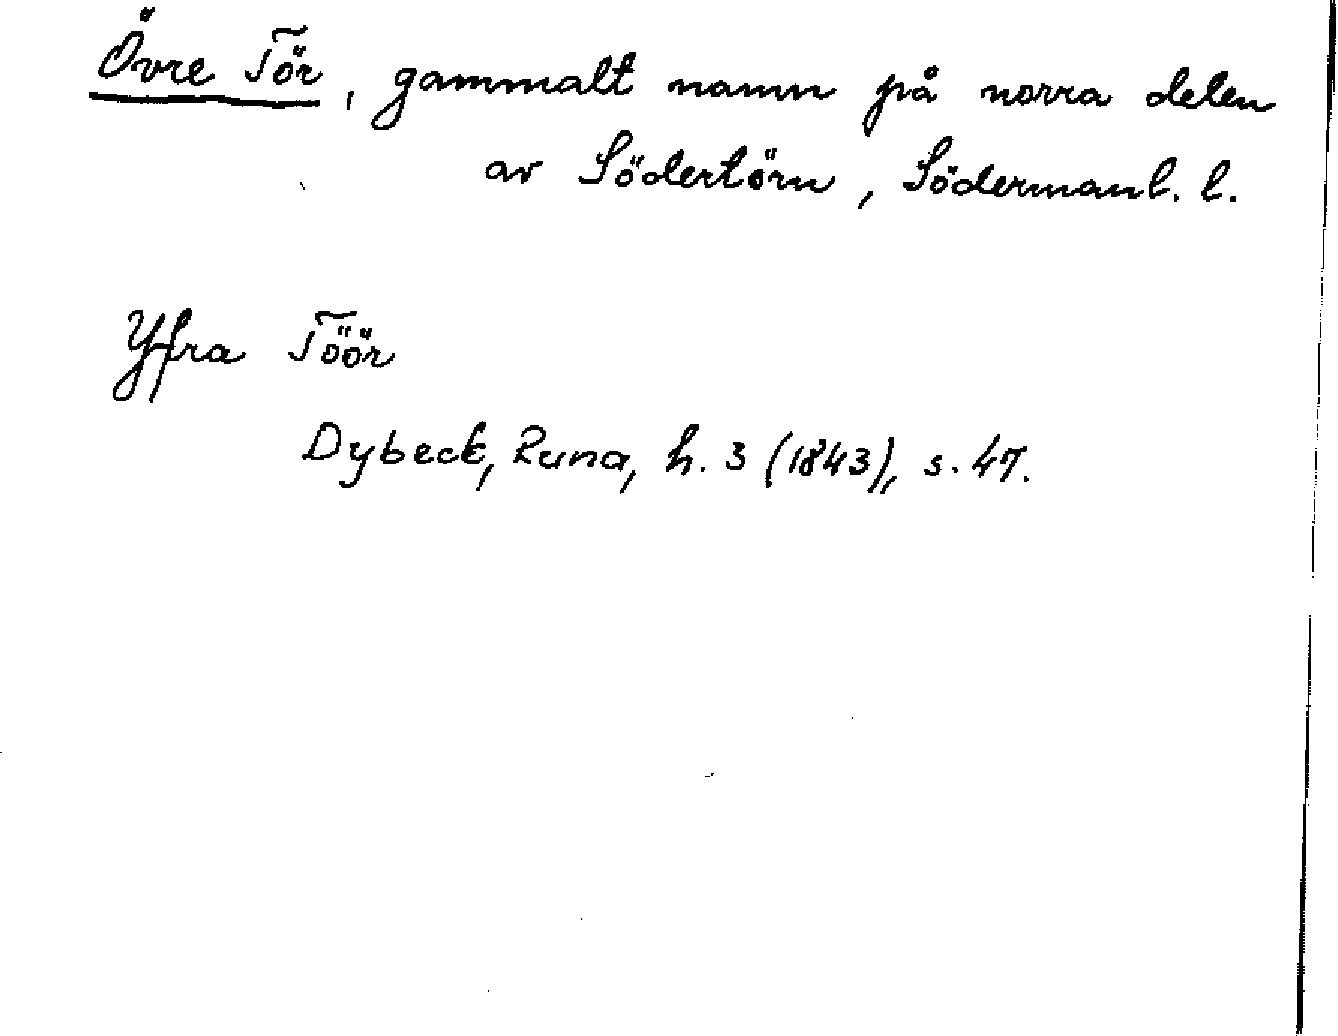 Övre Tör, gammalt namn på norra delen
av Södertörn, Södermanl. l.
Yfra Töör
Dybeck, Runa, h. 3 (1843), s. 47.